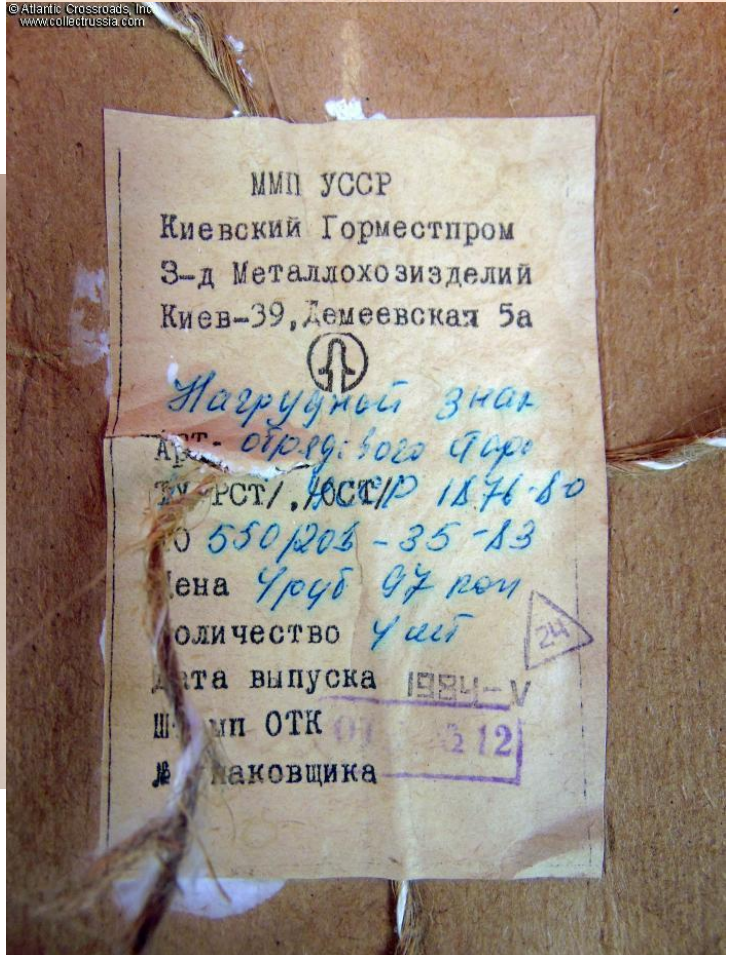 © Atlantic Crossroads, Inc
www.collectrussia.com
ММП УССР
Киевский Горместпром
З-д Металлохозизделий
Киев-39, Демеевская 5а
Нагрудный знак
Арт. обрядового
РСТ/,/ОСТ/ УССР 1876-80
550/205-35-83
Цена 4 руб 97 коп
Количество 4 шт
24
Дата выпуска 1984-V
Штамп ОТК 12
№ упаковщика